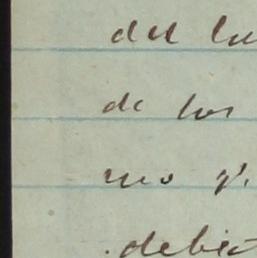 del lu
de los
mo y.
debia